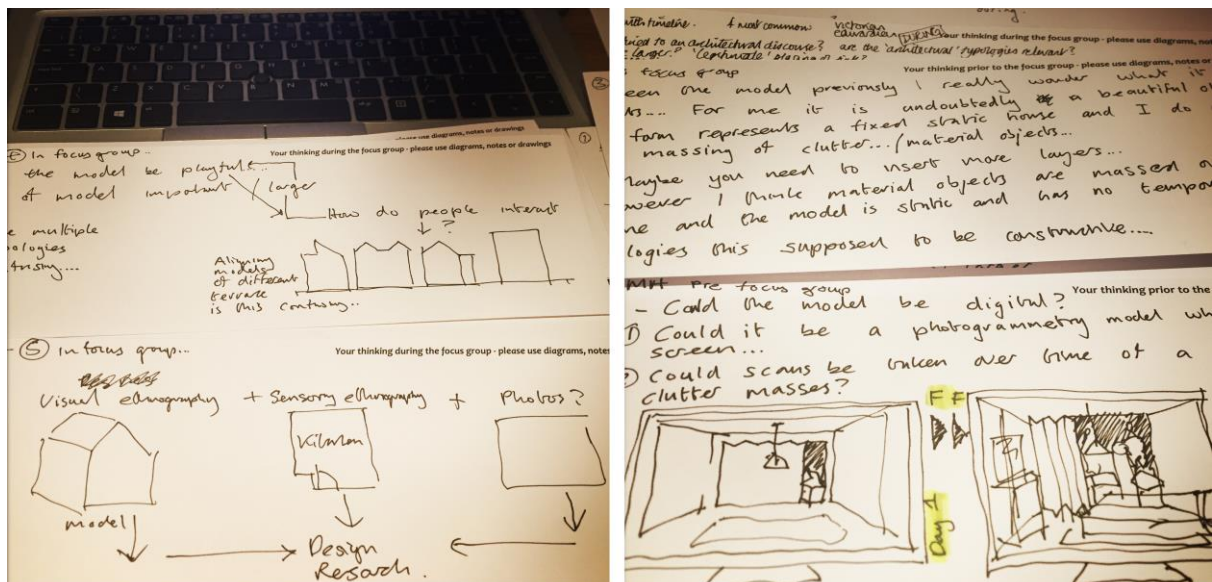 please use diagrams, notes or drawings
In focus group...
Your thinking during the focus group - please use diagrams, notes or drawings
①
the model be playful...
of model important / larger
How do people interact
?
multiple
ologies
Aligning
models
of different
terrace
is this confusing..
⑤ In focus group...
Your thinking during the focus group - please use diagrams, notes
Visual ethnography + Sensory ethnography + Photos?
Kitchen
model
Design
Research.
with timeline. most common victorian
edwardian
DURING
Your thinking during the focus group - please use diagrams, not
to an architectural discourse? are the 'architectural' typologies relevant?
larger? 'legitimate'
focus group
Your thinking prior to the focus group - please use diagrams, notes or
een one model previously I really wonder what it
For me it is undoubtedly a beautiful
form represents a fixed static house and I do
massing of clutter.../material objects...
Maybe you need to insert more layers...
owever I think material objects are massed
me and the model is static and has no tempo
ologies this supposed to be constructive....
Pre focus group
Your thinking prior to the
- Could the model be digital?
① Could it be a photogrammetry model wh
screen...
Could scans be taken over time of a
clutter masses?
FF
Day 1